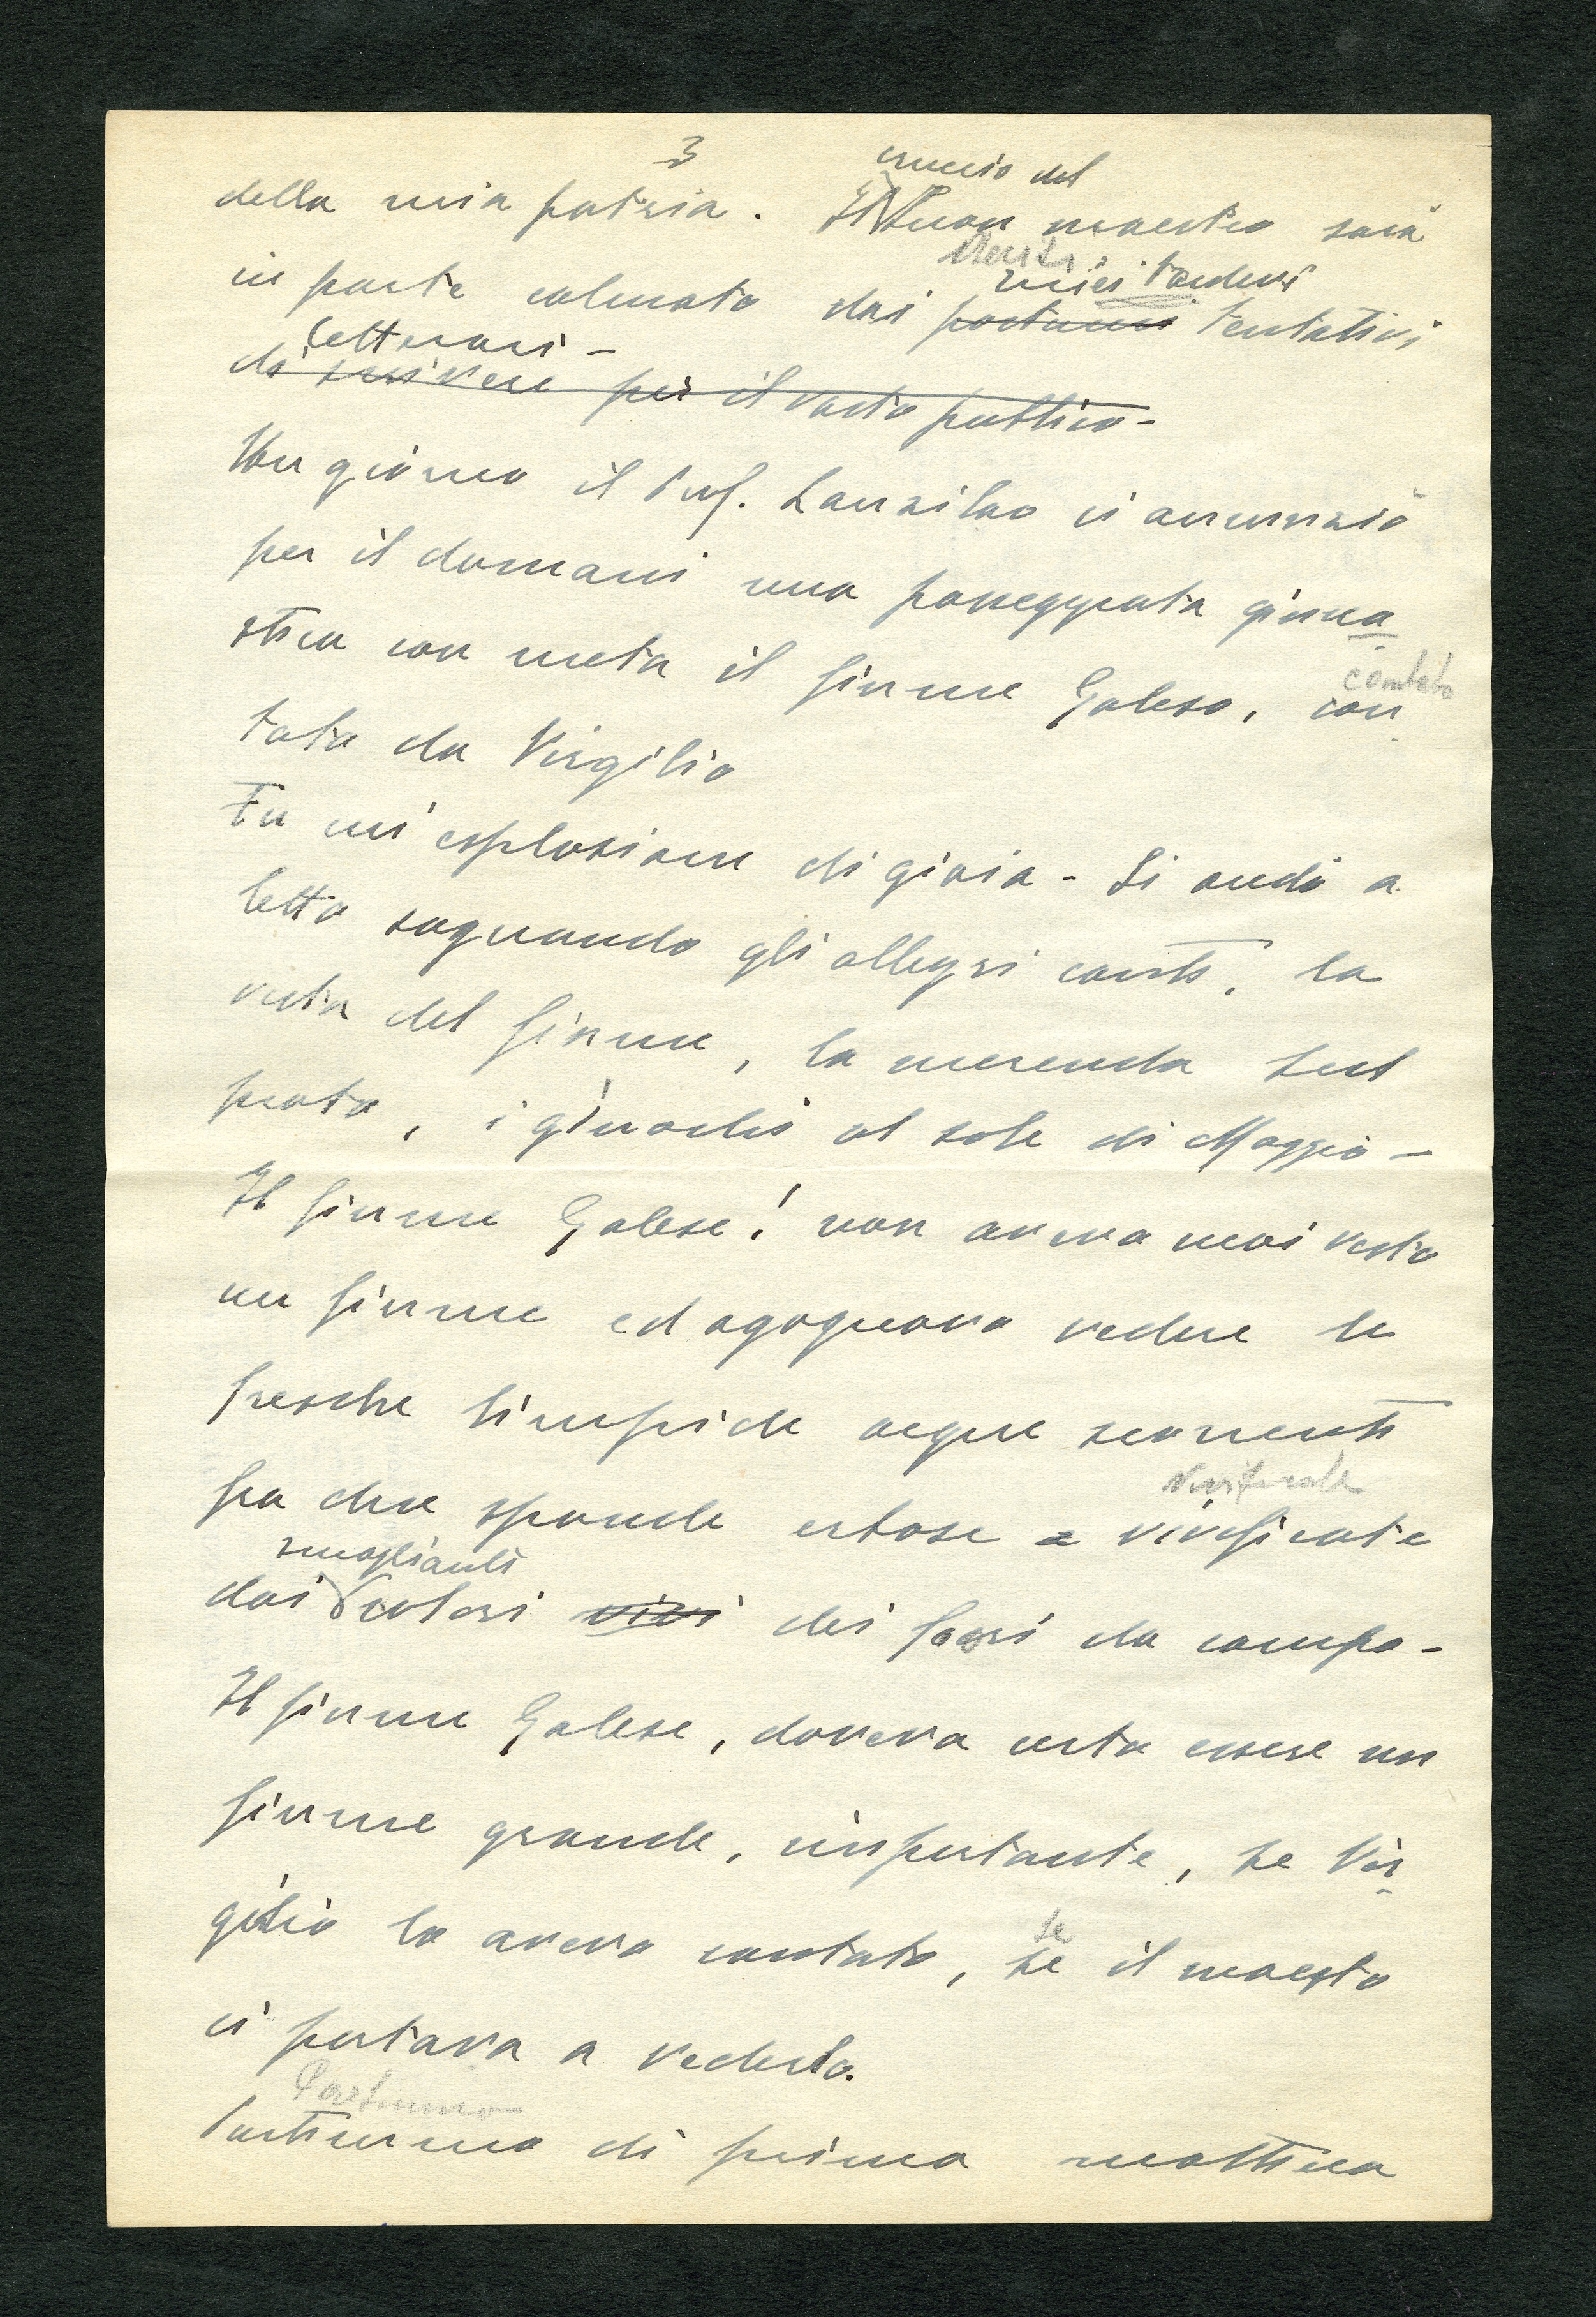 3
cruccio del
della mia patria. Il buon maestro sarà
miei tardivi
in parte calmato dai postumi tentativi
letterari -
di scrivere per il vasto pubblico -
Un giorno il Prof. Lanzilao ci annunziò
per il domani una passeggiata ginna
stica con meta il fiume Galeso, can
cantato
tato da Virgilio
Fu un'esplosione di gioia - Si andò a
letto sognando gli allegri canti, la
vista del fiume, la merenda sul
prato, i giuochi al sole di Maggio -
Il fiume Galese! non aveva mai visto
un fiume ed agognava vedere le
fresche limpide acque scorrenti
fra due sponde erbose e vivificate
smaglianti
dai colori vivi dei fiori da campo -
Il fiume Galese, doveva certo essere un
fiume grande, importante, se Vir
gilio lo aveva cantato, se il maestro
se
ci portava a vederlo.
Partimmo
Partimmo di prima mattina